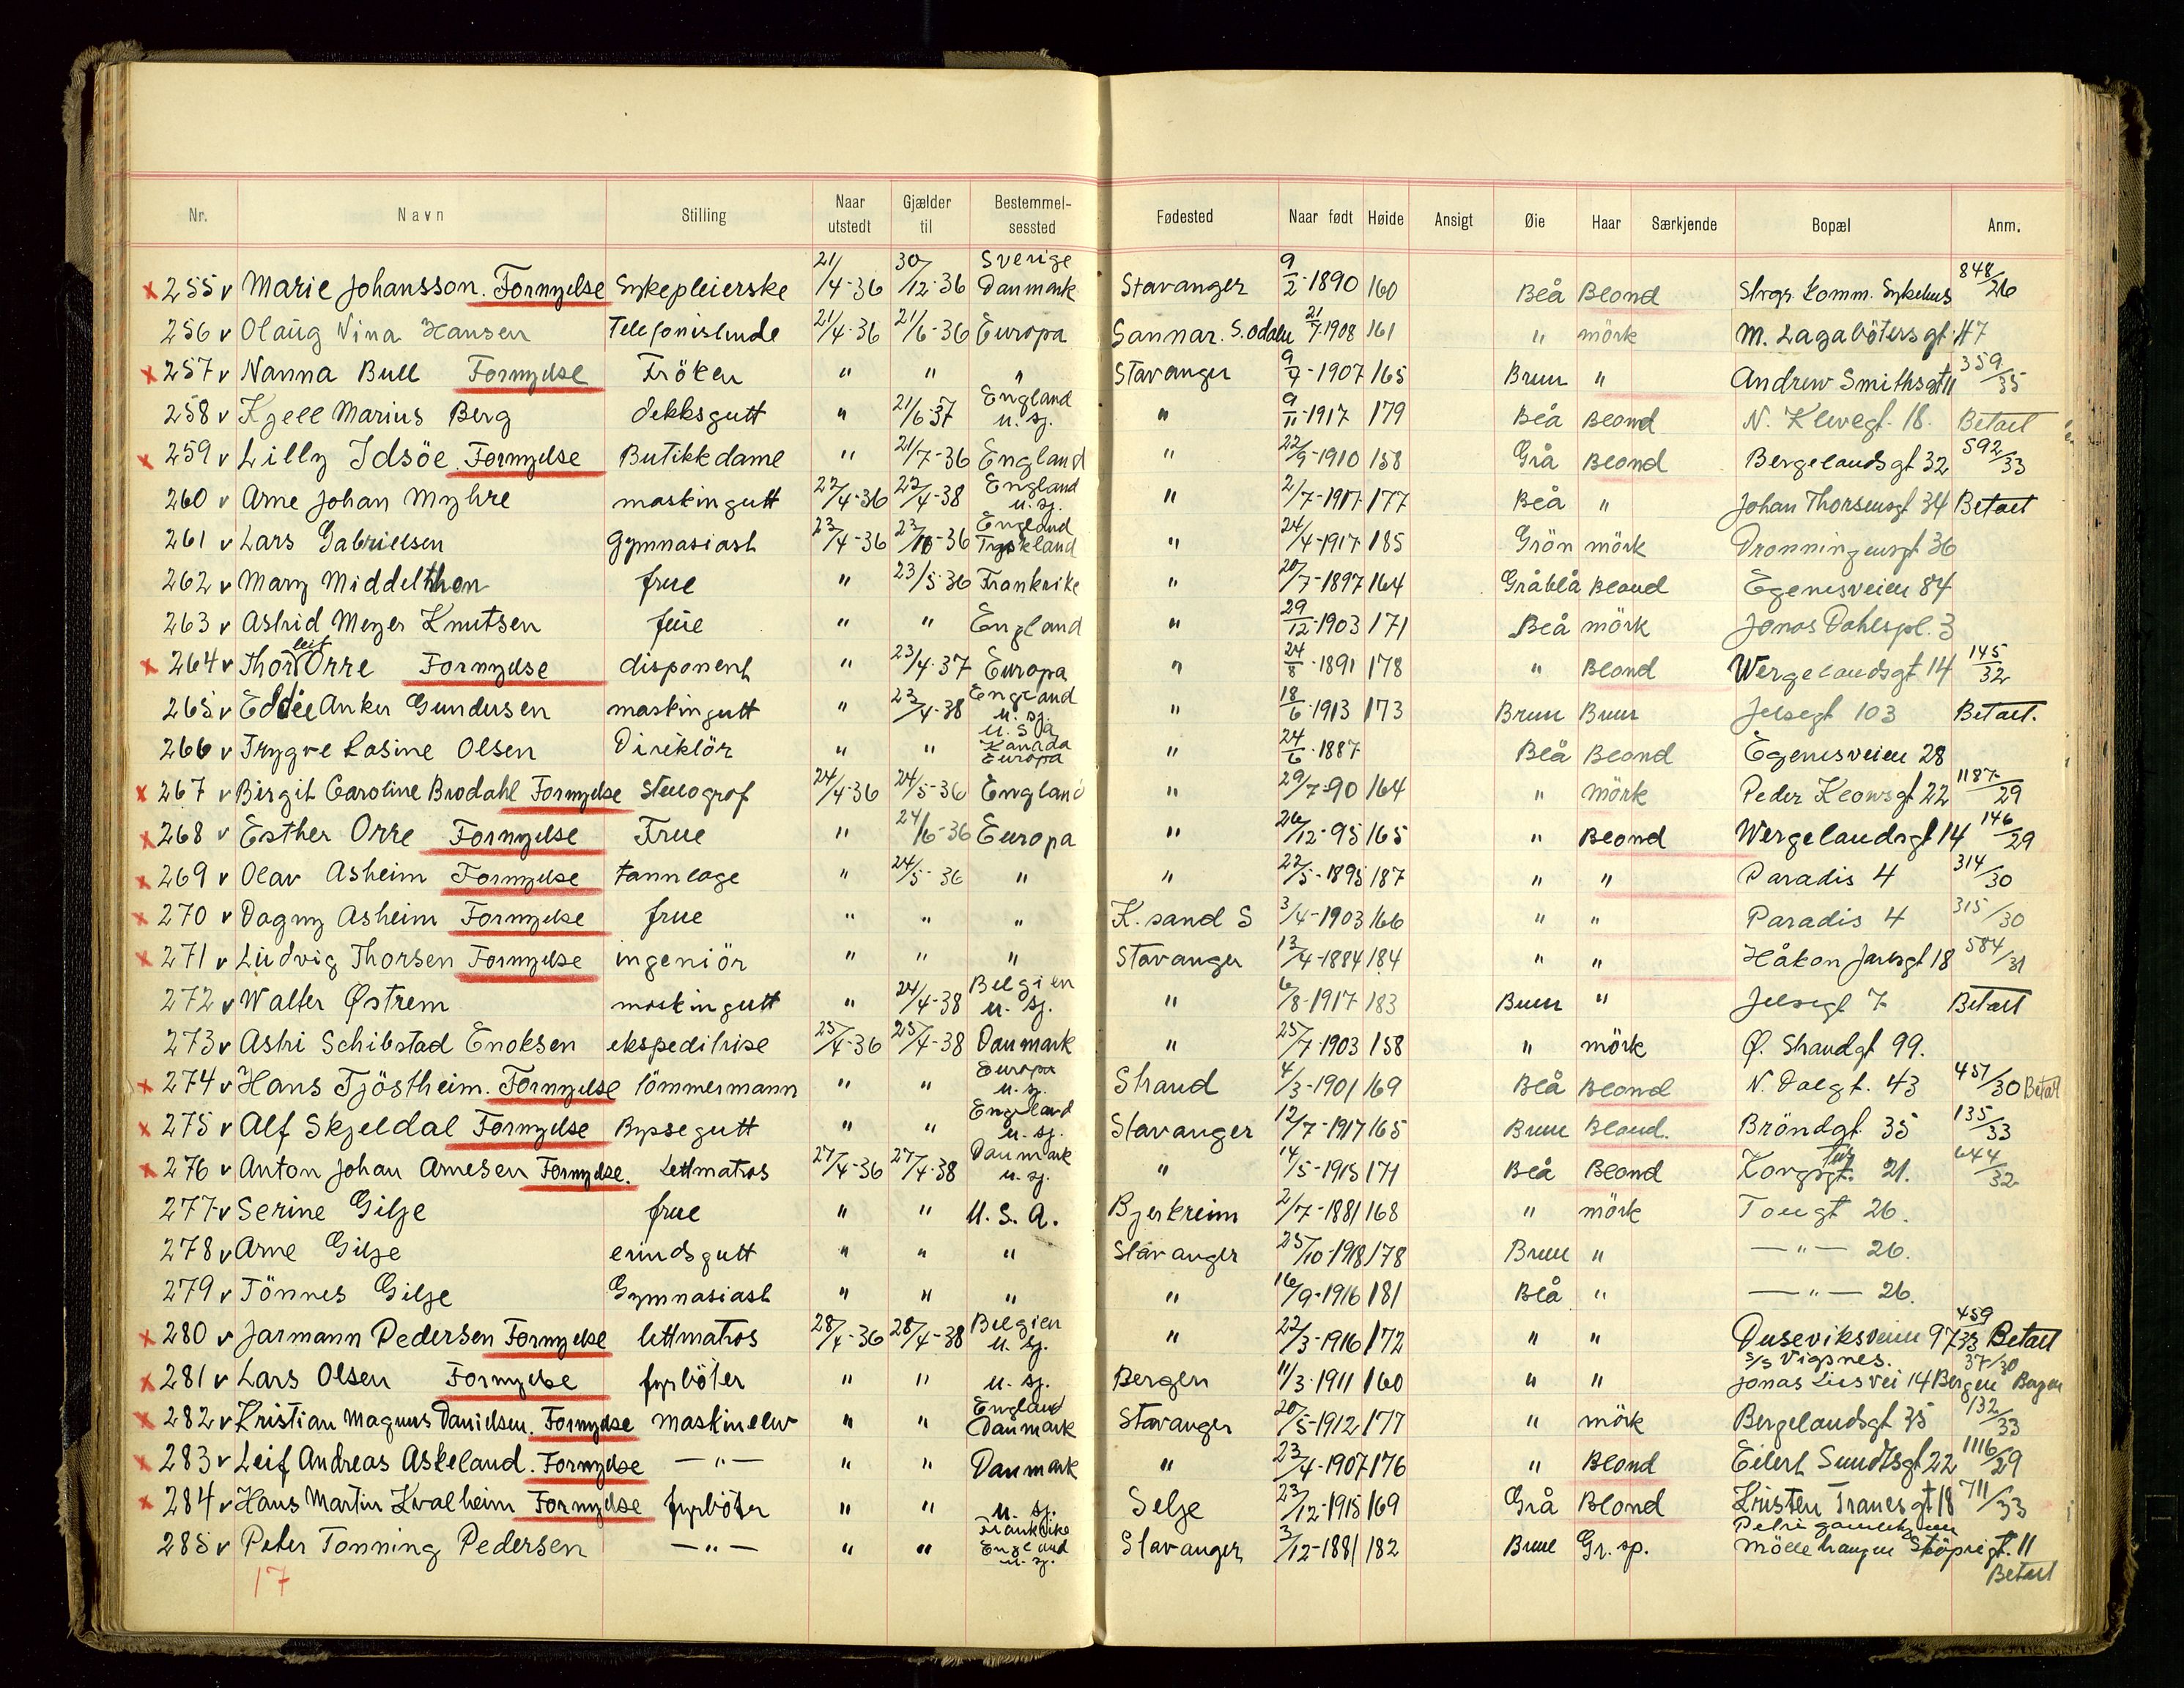 Nr. Navn Stilling Naar utstedt Gjælder til Bestemmelsessted Fødested Naar født Høide Ansigt Øie Haar Særkjende Bopæl Anm.
x 255 v Marie Johansson. Fornyelse Sykepleierske 21/4-36 30/12-36 Sverige Danmark Stavanger 9/2-1890 160 Blå Blond Stvgr. Komm. Sykehus 848/26
256 v Olaug Nina Hansen Telefonistinde 21/4-36 21/6-36 Europa Sannar. S. Odalen 21/7-1908 161 " mörk M. Lagabötersgt. 47
x 257 v Nanna Bull Fornyelse Fröken " " " Stavanger 9/7-1907 165 Brun " Andrew Smithsgt 11 359/35
258 v Kjell Marius Berg dekksgutt " 21/6-37 England u. sj. " 9/11-1917 179 Blå Blond N. Klevegt. 18. Betalt
x 259 v Lilly Idsöe. Fornyelse Butikkdame " 21/7-36 England " 22/9-1910 158 Grå Blond Bergelandsgt 32 592/33
260 v Arne Johan Myhre maskingutt 22/4-36 22/4-38 England u. sj. " 2/7-1917 177 Blå " Johan Thorsensgt 34 Betalt
261 v Lars Gabrielsen Gymnasiast 23/4-36 23/10-36 England Tyskland " 24/4-1917 185 Grön mörk Dronningensgt 36
262 v Mary Middelthon frue " 23/5-36 Frankrike " 20/7-1897 164 Gråblå Blond Egenesveien 84
263 v Astrid Meyer Knutsen frue " " England " 29/12-1903 171 Blå mörk Jonas Dahlspl. 3
x 264 v Thorleif Orre Fornyelse disponent " 23/4-37 Europa " 24/8-1891 178 " Blond Wergelandsgt 14 145/32
265 v Eddie Anker Gundersen maskingutt " 23/4-38 England u. sj. " 18/6-1913 173 Brun Brun Jelsegt 103 Betalt.
266 v Trygve Losine Olsen Direktör " " U. S. A Kanada Europa " 24/6-1887 Blå Blond Egenesveien 28
x 267 v Birgit Caroline Brodahl Fornyelse Stenograf 24/4-36 24/5-36 England " 29/7-90 164 " mörk Peder Klowsgt 22 1187/29
x 268 v Esther Orre Fornyelse Frue " 24/6-36 Europa " 26/12-95 165 " Blond Wergelandsgt 14 146/29
x 269 v Olav Asheim Fornyelse tannlæge " 24/5-36 " " 22/5-1895 187 " " Paradis 4 314/30
x 270 v Dagny Asheim Fornyelse frue " " " K. sand S 3/4-1903 166 " " Paradis 4 315/30
x 271 v Ludvig Thorsen Fornyelse ingeniör " " " Stavanger 13/4-1884 184 " " Håkon Jarlsgt 18 584/31
272 v Walter Østrem maskingutt " 24/4-38 Belgien u. sj. " 6/8-1917 183 Brun " Jelsegt 7 Betalt
273 v Astri Schibstad Enoksen ekspeditrise 25/4-36 25/4-38 Danmark " 25/7-1903 158 " mörk Ø. Strandgt 99.
x 274 v Hans Tjöstheim. Fornyelse tömmermann " " Europa u. sj. Strand 4/3-1901 169 Blå Blond N. Dalgt. 43 451/30 Betalt
x 275 v Alf Skjeldal Fornyelse Byssegutt " " England u. sj. Stavanger 12/7-1917 165 Brun Blond. Bröndgt 35 135/33
x 276 v Anton Johan Arnesen Fornyelse. Lettmatros 27/4-36 27/4-38 Danmark u. sj. " 14/5-1915 171 Blå Blond 21. 644/32
277 v Serine Gilje frue " " U. S. A. Bjerkreim 2/7-1881 168 " mörk Tougt 26.
278 v Arne Gilje erindsgutt " " " Stavanger 25/10-1918 178 Brun " — " — 26.
279 v Tönnes Gilje Gymnasiast " " " " 16/9-1916 181 Blå " — " — 26.
x 280 v Jarmann Pedersen Fornyelse lettmatros 28/4-36 28/4-38 Belgien u. sj. " 22/3-1916 172 " " Duseviksveien 97 459/33 Betalt
x 281 v Lars Olsen Fornyelse fyrböter " " u. sj. Bergen 11/3-1911 160 " " S/S Vigsnes. Jonas Liesvei 14 Bergen 37/30 Bergen
x 282 v Kristian Magnus Danielsen. Fornyelse maskinelev " " England Danmark Stavanger 20/5-1912 177 " mörk Bergelandsgt 35 132/33
x 283 v Leif Andreas Askeland. Fornyelse — " — " " Danmark " 23/4-1907 176 " Blond Eilert Sundtsgt 22 1116/29
x 284 v Hans Martin Kvalheim Fornyelse fyrböter " " u. sj. Selje 23/12-1915 169 Grå Blond Kristen Tranesgt 18 711/33
285 v Peter Tonning Pedersen — " — " " Frankrike England u. sj. Stavanger 3/12-1881 182 Brun Gr. sp. Petri gamlehjem Möllehaugen Støperigt. 11 Betalt
17